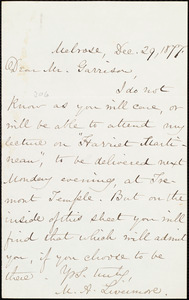 Melrose, Dec. 29, 1877.
Dear Mr. Garrison,
I do not
know as you will care, or
will be able to attend my
lecture on "Harriet Marti-
neau," to be delivered next
Monday evening, at Tre-
mont Temple. But on the
inside of this sheet you will
find that which will admit
you, if you choose to be
there. Yrs. truly,
M. A. Livermore.